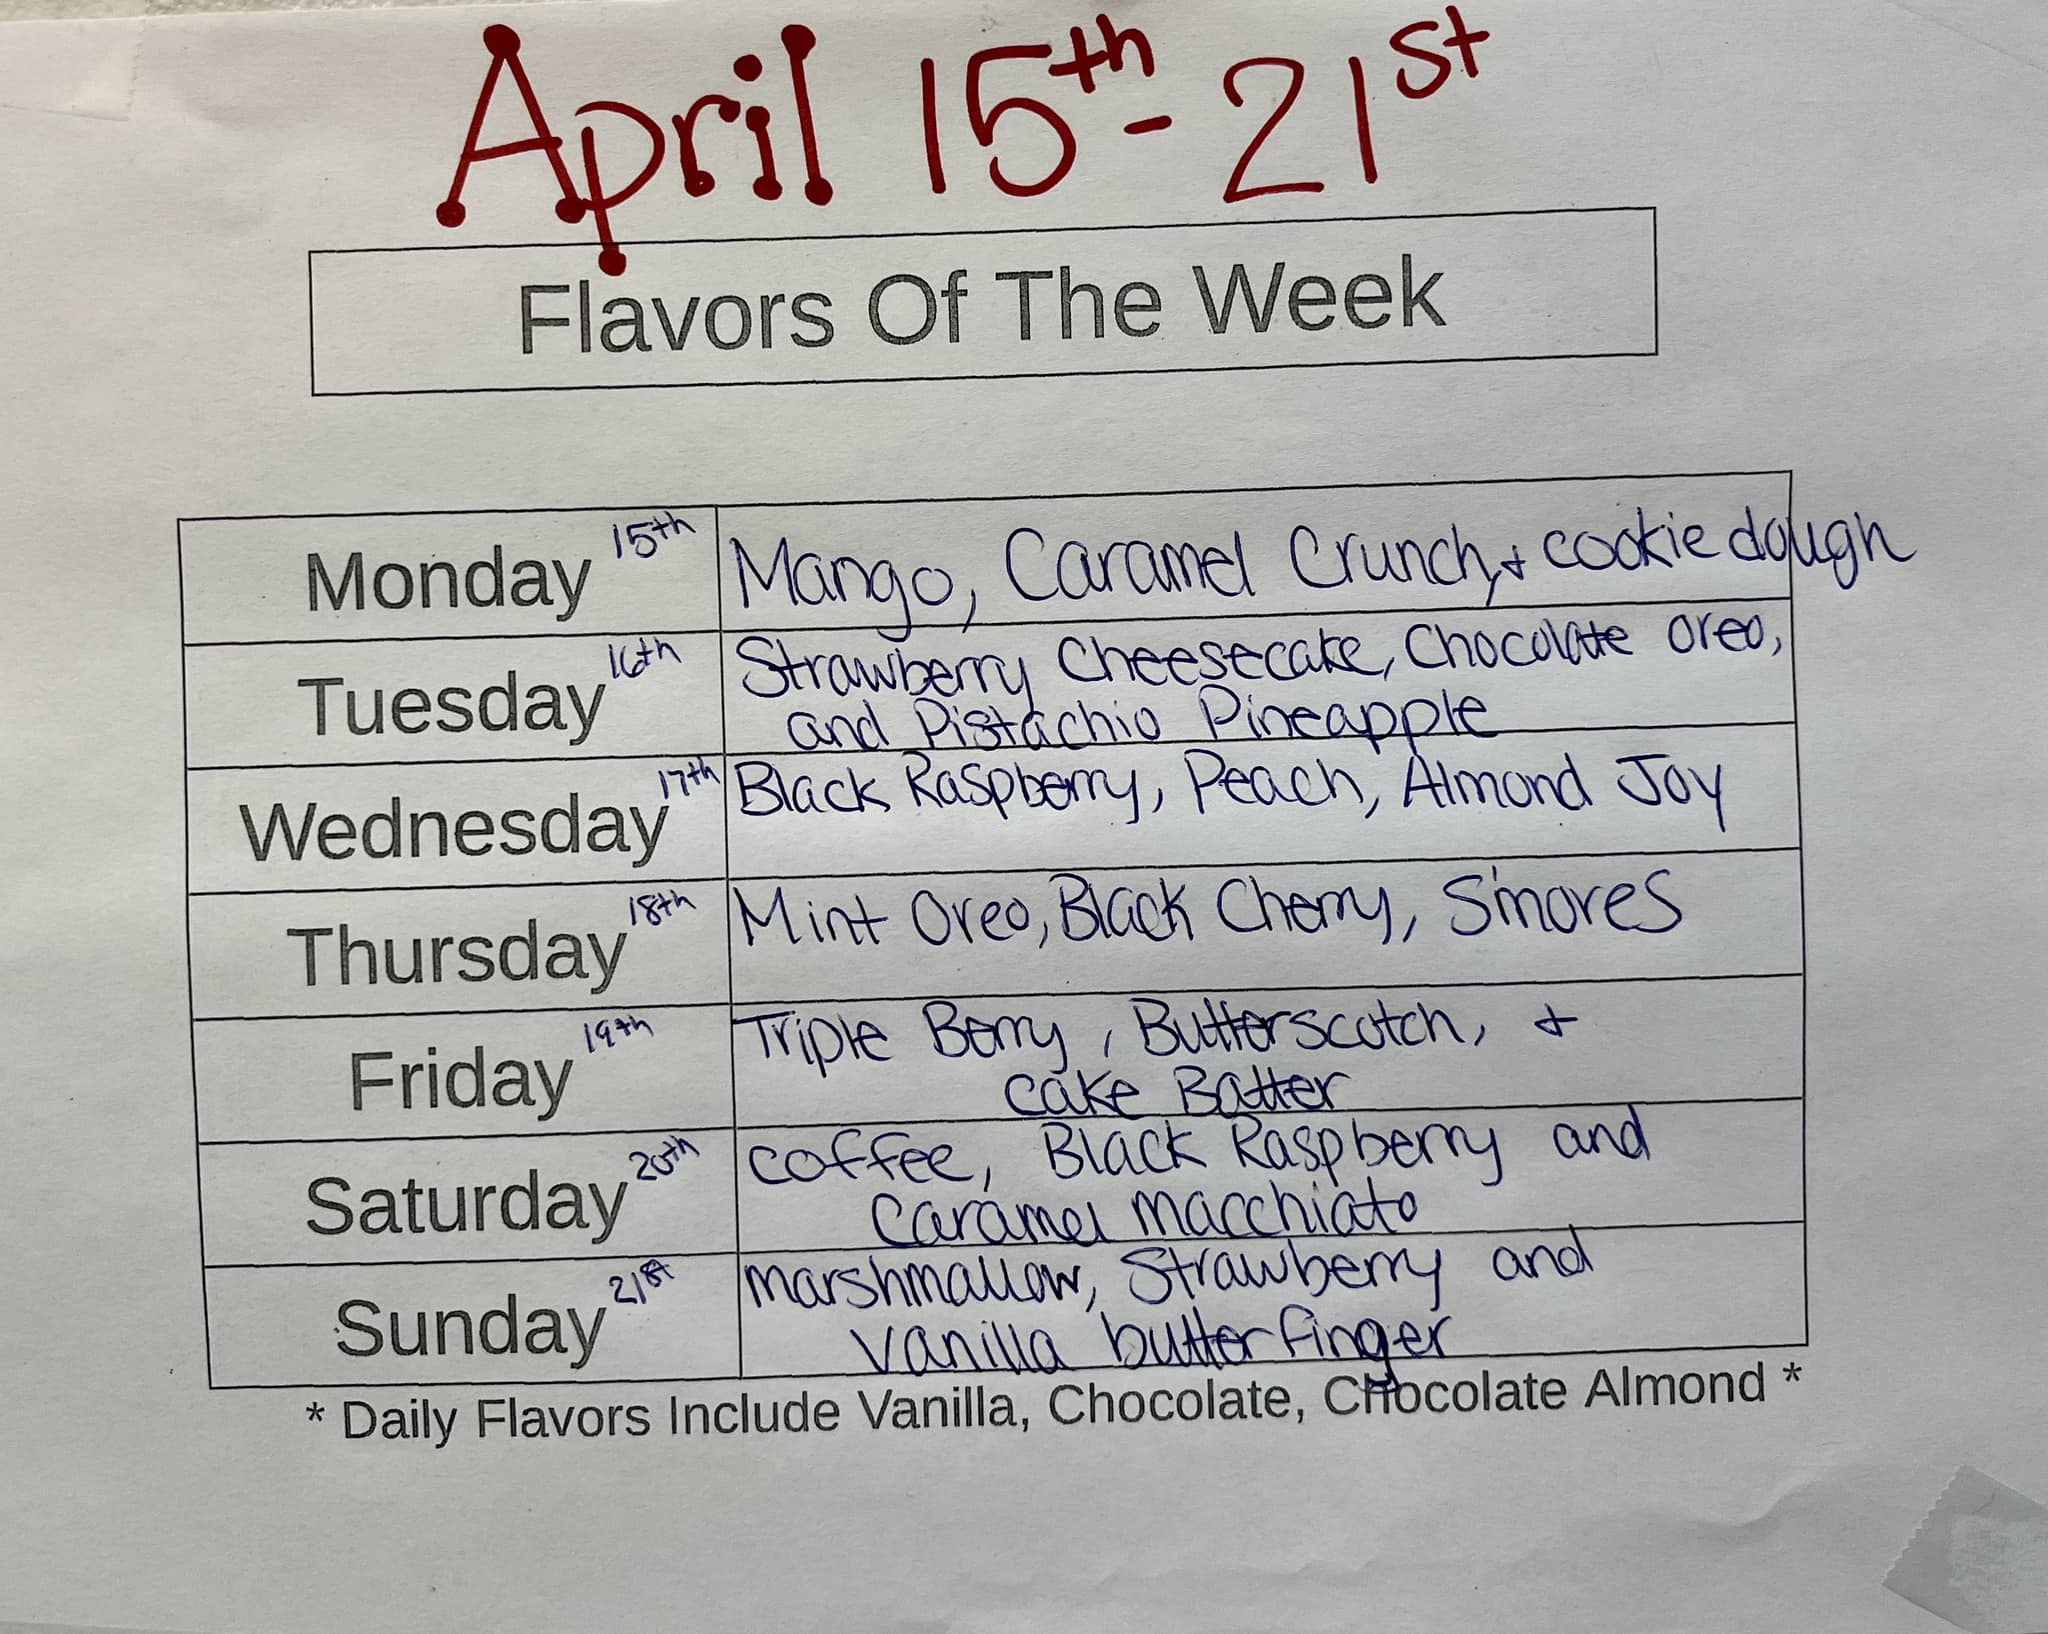 April 15th - 21st
Flavors Of The Week
Monday 15th Mango, Caramel Crunch, + cookie dough
Tuesday 16th Strawberry Cheesecake, Chocolate Oreo,
and Pistachio Pineapple
Wednesday 17th Black Raspberry, Peach, Almond Joy
Thursday 18th Mint Oreo, Black Cherry, S'mores
Friday 19th Triple Berry, Butterscotch, +
Cake Batter
Saturday 20th Coffee, Black Raspberry and
Caramel Macchiato
Sunday 21st Marshmallow, Strawberry and
Vanilla butterfinger
* Daily Flavors Include Vanilla, Chocolate, Chocolate Almond *